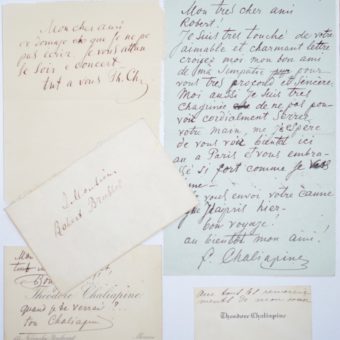 Mon cher ami
je ne pe
pas ecrire je vous attan
le soir a concert
tut a vous Th. Ch.
Mon tres cher ami
Robert!
Je suis tres touché de votre
aimable et charmant lettre
croyez moi mon bon ami
de ma simpatie pour
vous tres profond et sencere.
Moi aussi je suis tres
chagrinée de ne pas pou
voir cordialement serrer
votre main, me j'espère
de vous voir bientôt ici
ou a Paris et vous embra
sé si fort comme je
aime-
vous envoi votre canne
que j'appris hier-
bon voyage!
au bientôt mon ami!
F. Chaliapine
à Monsieur
Robert Brussel
Mon
Théodore Chaliapine
quand je te verrai?..
ton Chaliapine
Moscou
de mon coeur
Théodore Chaliapine